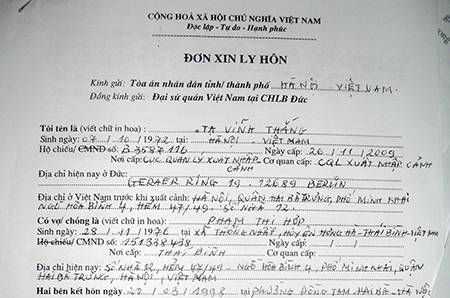 CỘNG HOÀ XÃ HỘI CHỦ NGHĨA VIỆT NAM
Độc lập - Tự do - Hạnh phúc
ĐƠN XIN LY HÔN
Kính gửi: Tòa án nhân dân tỉnh/ thành phố HÀ NỘI - VIỆT NAM.
Đồng kính gửi: Đại sứ quán Việt Nam tại CHLB Đức
Tôi tên là (viết chữ in hoa) : TẠ VĨNH THẮNG
Sinh ngày: 07 / 10 / 1972 tại: HÀ NỘI - VIỆT NAM
Hộ chiếu/ CMND số: B 3587116 Ngày cấp: 26 / 11 / 2009
Nơi cấp: CỤC QUẢN LÝ XUẤT NHẬP CẢNH Cơ quan cấp: CQL XUẤT NHẬP CẢNH
Địa chỉ hiện nay ở Đức: GERAER RING 19 12689 BERLIN
Địa chỉ ở Việt Nam trước khi xuất cảnh: HÀ NỘI, QUẬN HAI BÀ TRƯNG, PHỐ MINH KHAI
NGÕ HÒA BÌNH 4, HẺM 47/49. SỐ NHÀ 12.
Có vợ chồng là (viết chữ in hoa) : PHẠM THỊ HỢP
Sinh ngày: 28 / 11 / 1976 tại: XÃ THỐNG NHẤT, HUYỆN HƯNG HÀ - THÁI BÌNH - VIỆT NAM
Hộ chiếu/ CMND số: 151338438 Ngày cấp: / /
Nơi cấp: THÁI BÌNH Cơ quan cấp:
Địa chỉ hiện nay: SỐ NHÀ 12, HẺM 47/49 - NGÕ HÒA BÌNH 4, PHỐ MINH KHAI, QUẬN
HAI BÀ TRƯNG, HÀ NỘI, VIỆT NAM
Hai bên kết hôn ngày 20 / 03 / 1998 tại PHƯỜNG ĐỒNG TÂM, HAI BÀ - HÀ NỘI